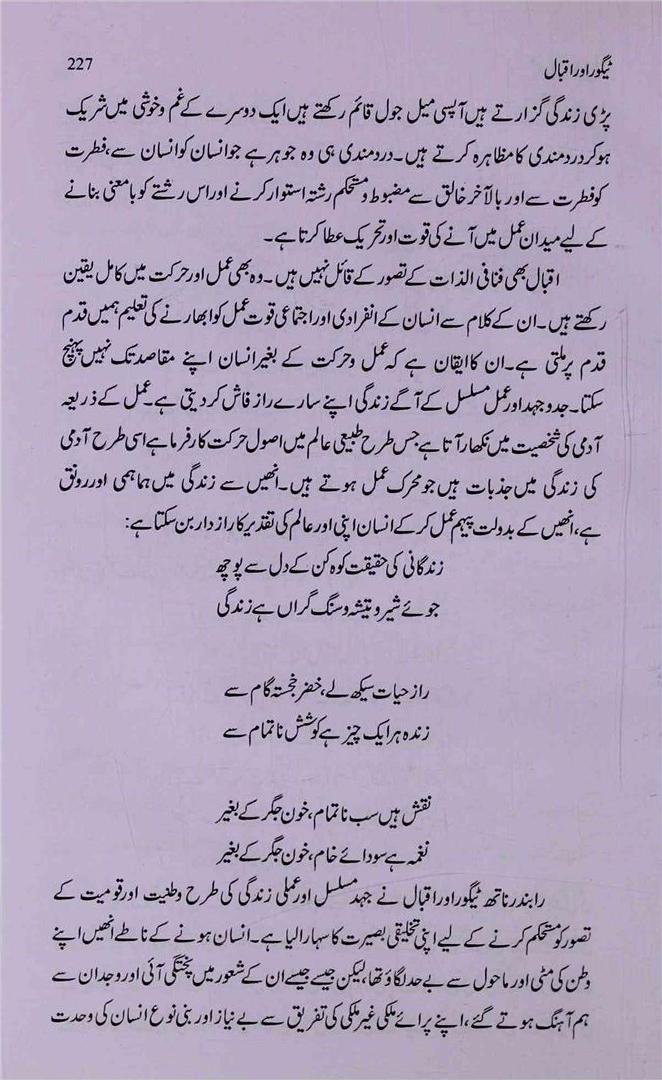 ٹیگور اور اقبال 227
پڑی زندگی گزارتے ہیں آپسی میل جول قائم رکھتے ہیں ایک دوسرے کے غم و خوشی میں شریک
ہوکر دردمندی کا مظاہرہ کرتے ہیں۔ دردمندی ہی وہ جوہر ہے جو انسان کو انسان سے، فطرت
کو فطرت سے اور بالآخر خالق سے مضبوط و مستحکم رشتہ استوار کرنے اور اس رشتے کو بامعنی بنانے
کے لیے میدان عمل میں آنے کی قوت اور تحریک عطا کرتا ہے۔
اقبال بھی فنا فی الذات کے تصور کے قائل نہیں ہیں۔ وہ بھی عمل اور حرکت میں کامل یقین
رکھتے ہیں۔ ان کے کلام سے انسان کے انفرادی اور اجتماعی قوت عمل کو ابھارنے کی تعلیم ہمیں قدم
قدم پر ملتی ہے۔ ان کا ایقان ہے کہ عمل و حرکت کے بغیر انسان اپنے مقاصد تک نہیں پہنچ
سکتا۔ جدوجہد اور عمل مسلسل کے آگے زندگی اپنے سارے راز فاش کر دیتی ہے۔ عمل کے ذریعہ
آدمی کی شخصیت میں نکھار آتا ہے جس طرح طبیعی عالم میں اصول حرکت کارفرما ہے اسی طرح آدمی
کی زندگی میں جذبات ہیں جو محرک عمل ہوتے ہیں۔ انھیں سے زندگی میں ہماہمی اور رونق
ہے، انھیں کے بدولت پیہم عمل کر کے انسان اپنی اور عالم کی تقدیر کا رازدار بن سکتا ہے:
زندگانی کی حقیقت کوہ کن کے دل سے پوچھ
جوئے شیر و تیشہ و سنگ گراں ہے زندگی
راز حیات سیکھ لے، خضر خجستہ گام سے
زندہ ہر ایک چیز ہے کوشش ناتمام سے
نقش ہیں سب ناتمام، خون جگر کے بغیر
نغمہ ہے سودائے خام، خون جگر کے بغیر
رابندر ناتھ ٹیگور اور اقبال نے جہد مسلسل اور عملی زندگی کی طرح وطنیت اور قومیت کے
تصور کو مستحکم کرنے کے لیے اپنی تخلیقی بصیرت کا سہارا لیا ہے۔ انسان ہونے کے ناطے انھیں اپنے
وطن کی مٹی اور ماحول سے بے حد لگاؤ تھا، لیکن جیسے جیسے ان کے شعور میں پختگی آئی اور وجدان سے
ہم آہنگ ہوتے گئے، اپنے پرائے ملکی غیر ملکی کی تفریق سے بے نیاز اور بنی نوع انسان کی وحدت